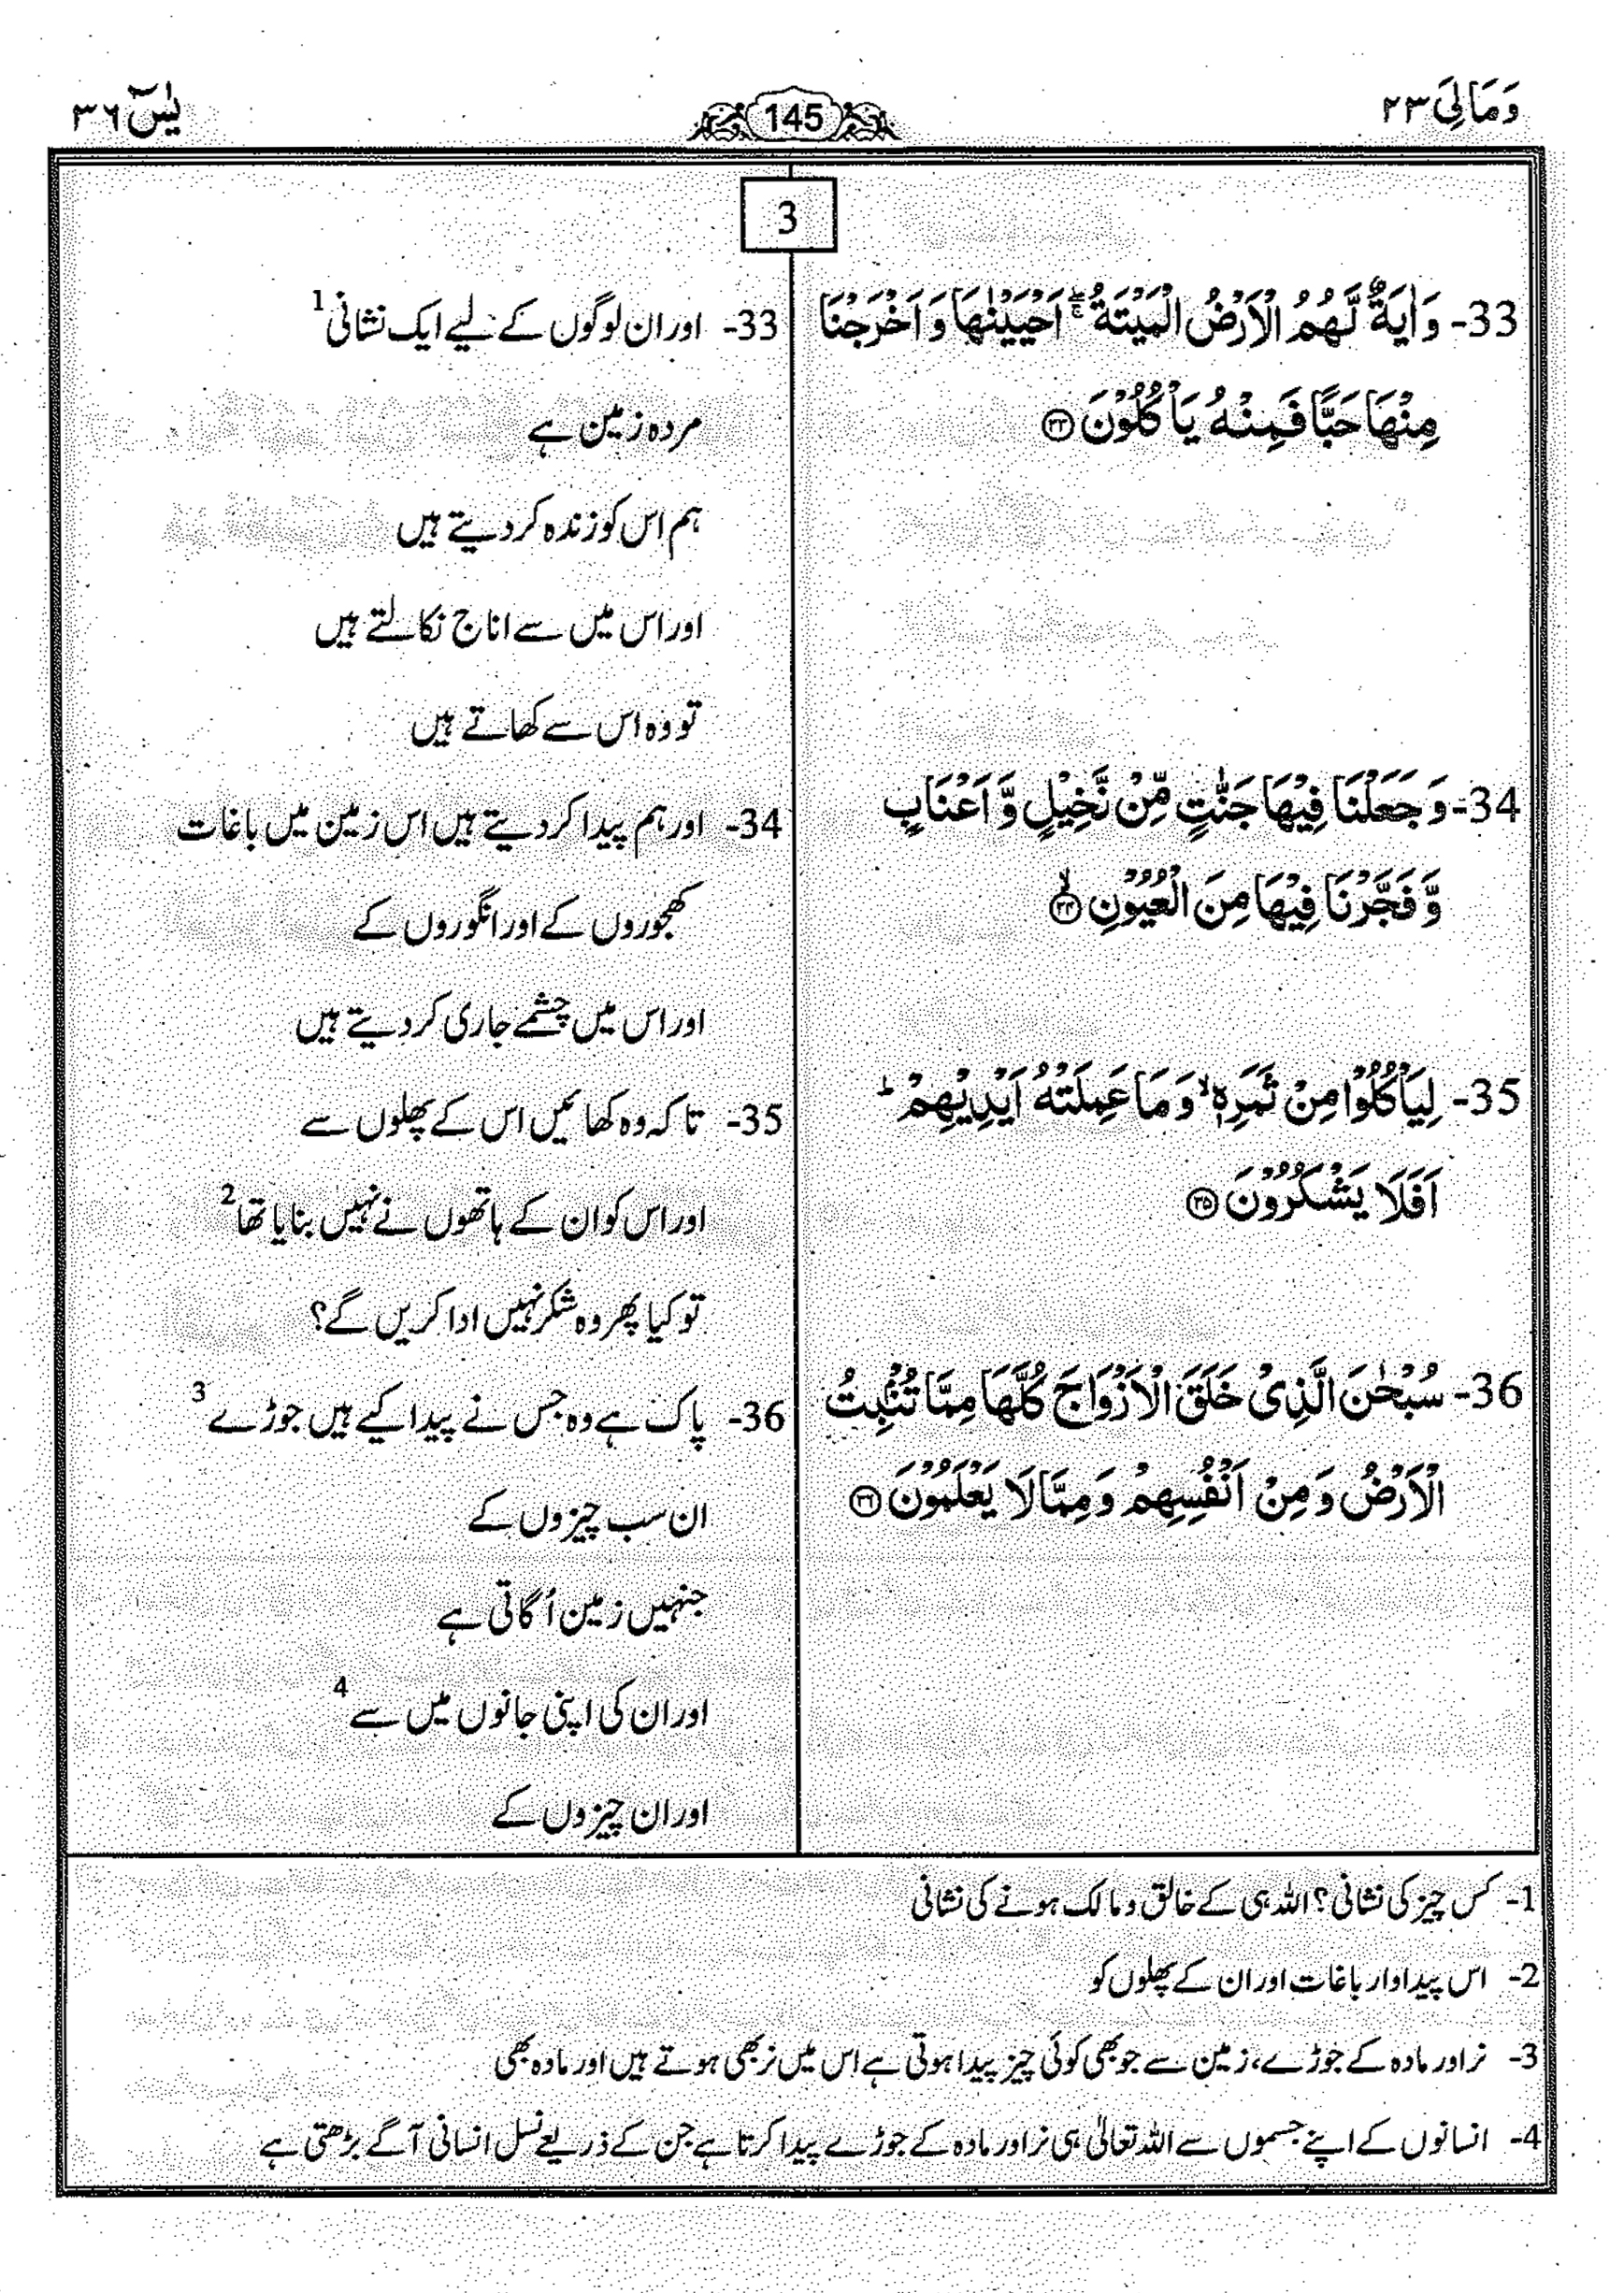 وَمَالِیَ ۲۳
145
یٰسٓ ۳۶
3
33- وَاٰیَةٌ لَّهُمُ الْاَرْضُ الْمَیْتَةُ ۖۚ اَحْیَیْنٰهَا وَ اَخْرَجْنَا
مِنْهَا حَبًّا فَمِنْهُ یَاْكُلُوْنَ ۝۳۳
34- وَ جَعَلْنَا فِیْهَا جَنّٰتٍ مِّنْ نَّخِیْلٍ وَّ اَعْنَابٍ
وَّ فَجَّرْنَا فِیْهَا مِنَ الْعُیُوْنِ ۝۳۴ۙ
35- لِیَاْكُلُوْا مِنْ ثَمَرِهٖ ۙ وَ مَا عَمِلَتْهُ اَیْدِیْهِمْ ؕ
اَفَلَا یَشْكُرُوْنَ ۝۳۵
36- سُبْحٰنَ الَّذِیْ خَلَقَ الْاَزْوَاجَ كُلَّهَا مِمَّا تُنْۢبِتُ
الْاَرْضُ وَ مِنْ اَنْفُسِهِمْ وَ مِمَّا لَا یَعْلَمُوْنَ ۝۳۶
33- اور ان لوگوں کے لیے ایک نشانی 1
مردہ زمین ہے
ہم اس کو زندہ کر دیتے ہیں
اور اس میں سے اناج نکالتے ہیں
تو وہ اس سے کھاتے ہیں
34- اور ہم پیدا کر دیتے ہیں اس زمین میں باغات
کھجوروں کے اور انگوروں کے
اور اس میں چشمے جاری کر دیتے ہیں
35- تاکہ وہ کھائیں اس کے پھلوں سے
اور اس کو ان کے ہاتھوں نے نہیں بنایا تھا 2
تو کیا پھر وہ شکر نہیں ادا کریں گے؟
36- پاک ہے وہ جس نے پیدا کیے ہیں جوڑے 3
ان سب چیزوں کے
جنہیں زمین اُگاتی ہے
اور ان کی اپنی جانوں میں سے 4
اور ان چیزوں کے
1- کس چیز کی نشانی؟ اللہ ہی کے خالق و مالک ہونے کی نشانی
2- اس پیداوار باغات اور ان کے پھلوں کو
3- نر اور مادہ کے جوڑے، زمین سے جو بھی کوئی چیز پیدا ہوتی ہے اس میں نر بھی ہوتے ہیں اور مادہ بھی
4- انسانوں کے اپنے جسموں سے اللہ تعالیٰ ہی نر اور مادہ کے جوڑے پیدا کرتا ہے جن کے ذریعے نسل انسانی آگے بڑھتی ہے